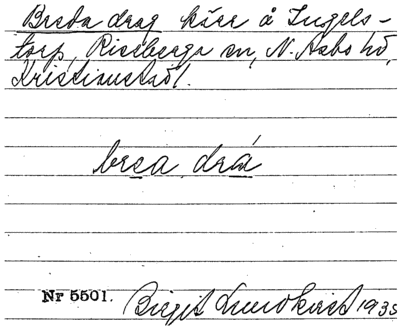 Breda drag kärr å Ingels-
torp, Riseberga sn, N. Åsbo hd,
Kristianstad l.
brea drá
Nr 5501. Birgit Lundkvist 1935